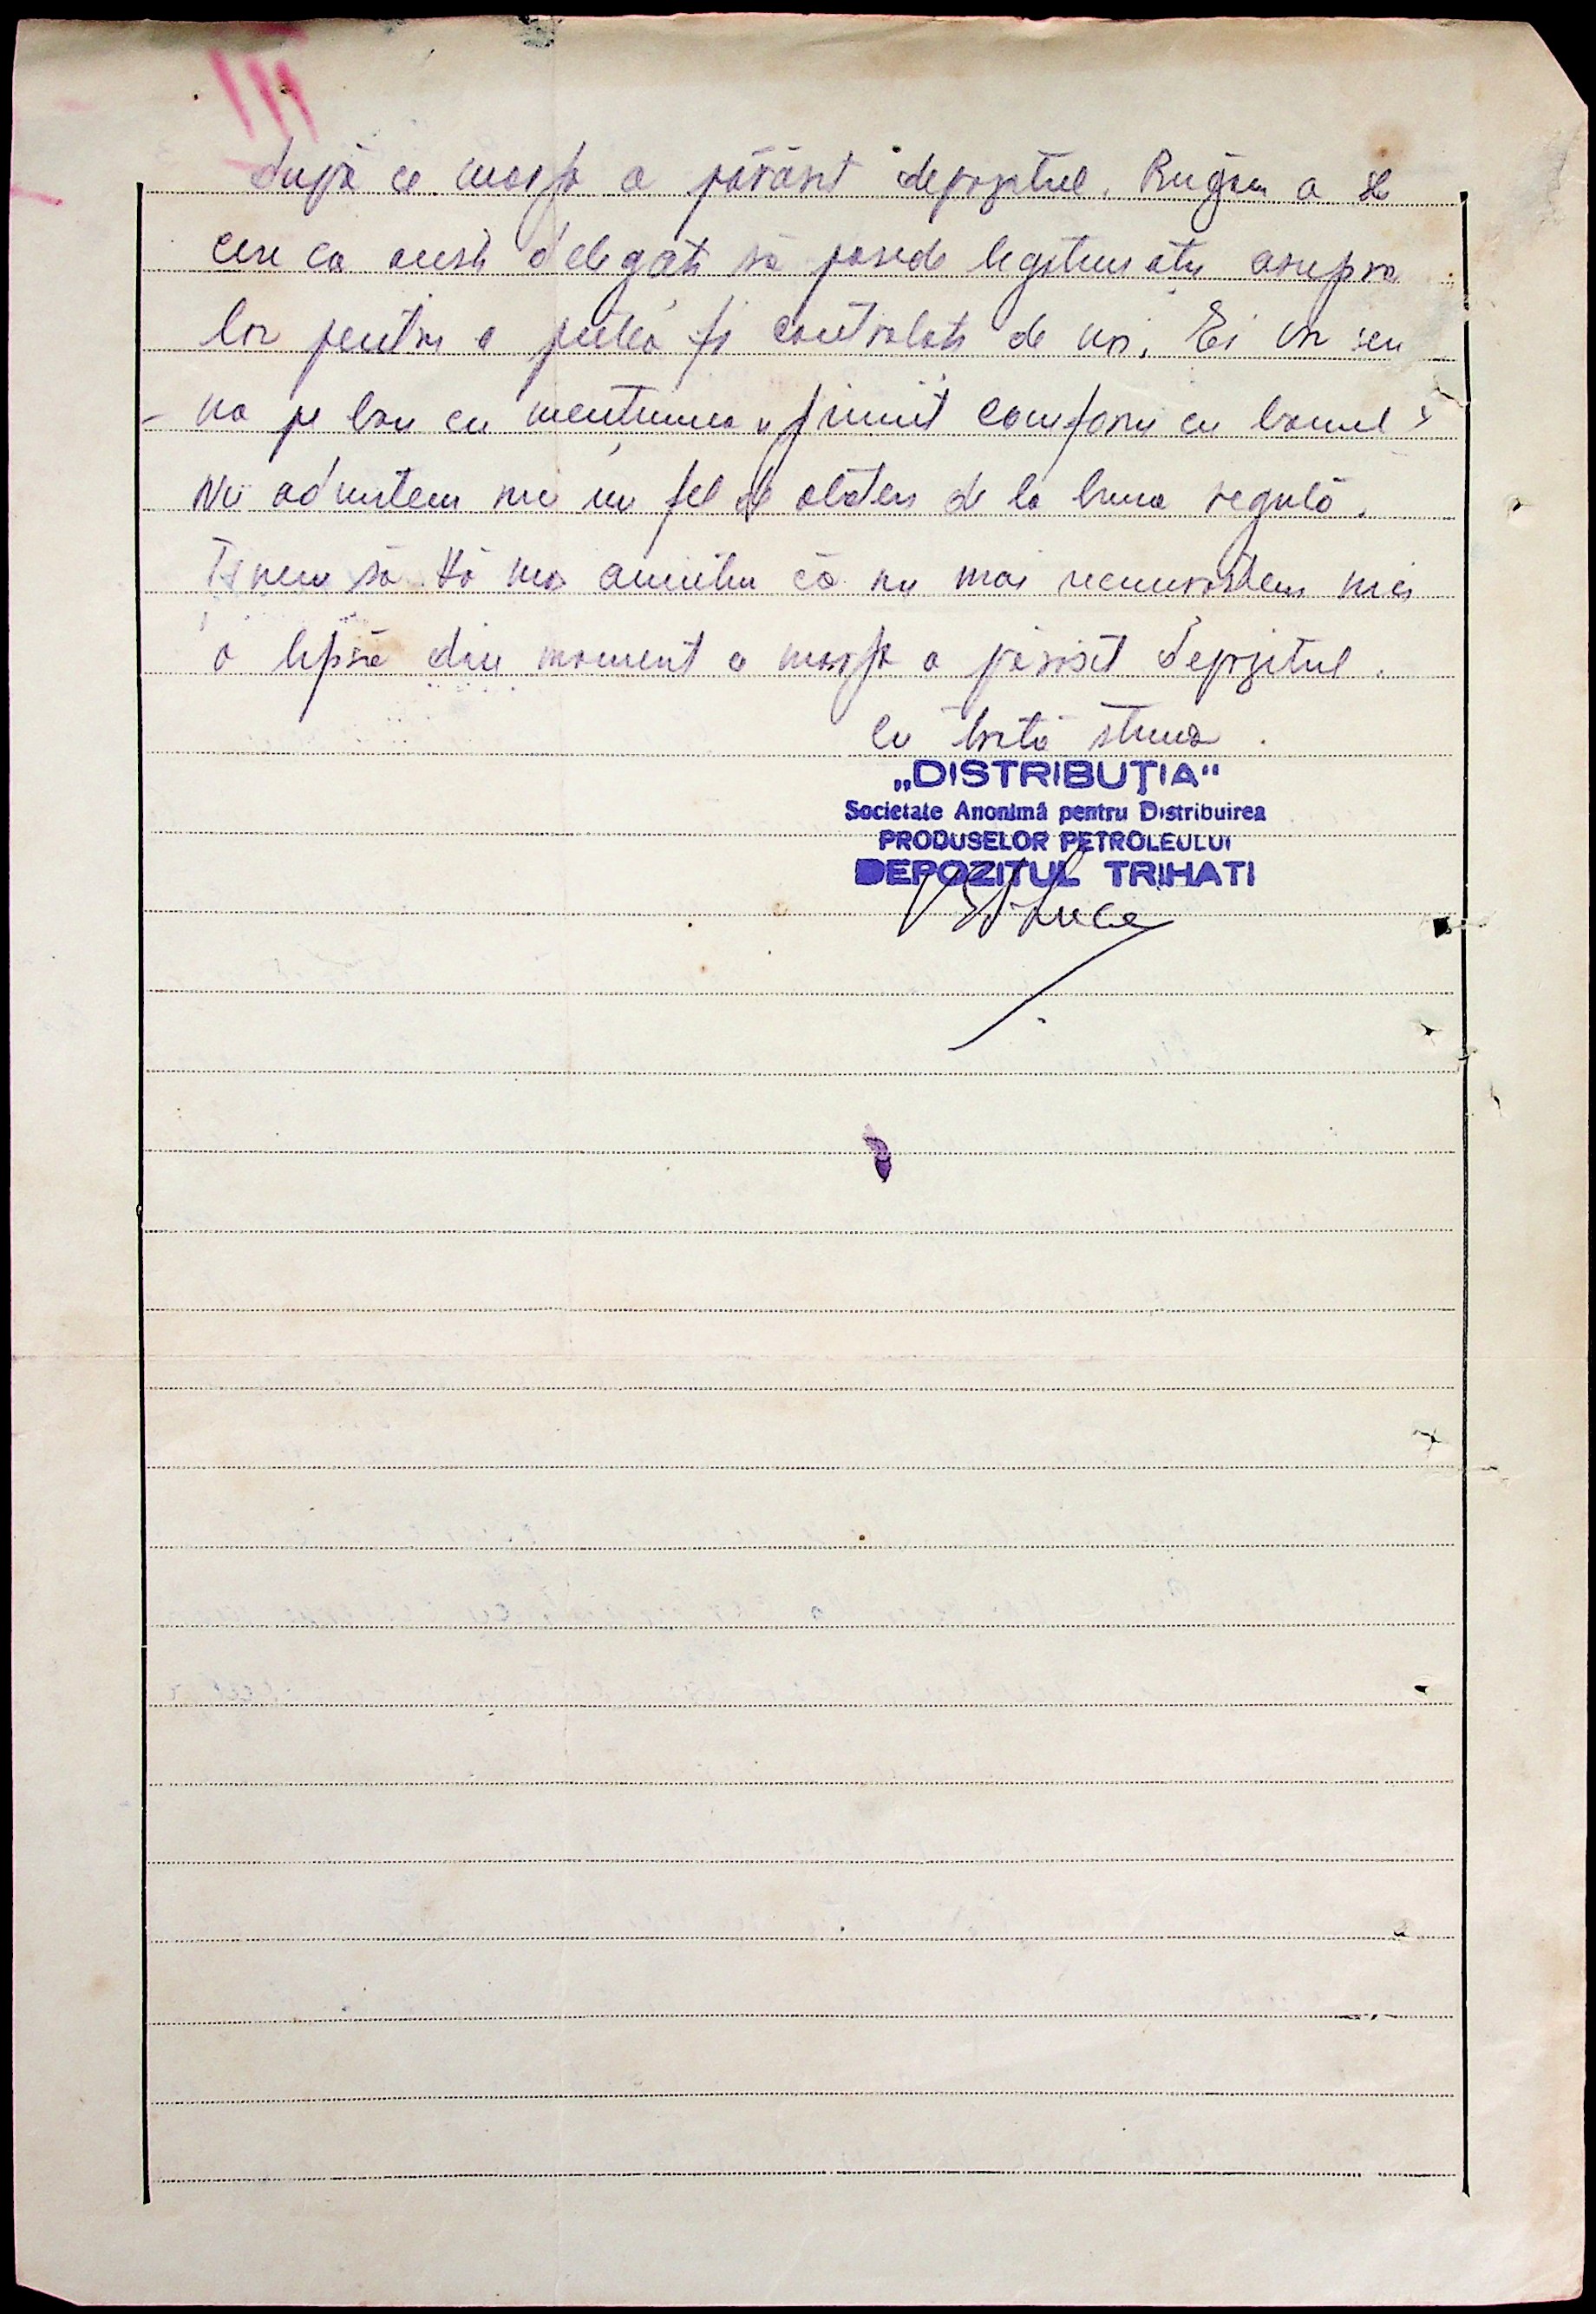 după ce marfa a părăsit depozitul. Rugăm a se
cere ca acești delegați să posede legitimații asupra
lor pentru a putea fi controlați de noi. Ei vor sem
na pe bon cu mențiunea „primit conform cu bonul"
Nu admitem nici un fel de abateri de la buna regulă.
Ținem să Vă mai amintim că nu mai recunoaștem nici
o lipsă din moment ce marfa a părăsit depozitul.
Cu toată stima.
„DISTRIBUŢIA"
Societate Anonimă pentru Distribuirea
PRODUSELOR PETROLEULUI
DEPOZITUL TRIHATI